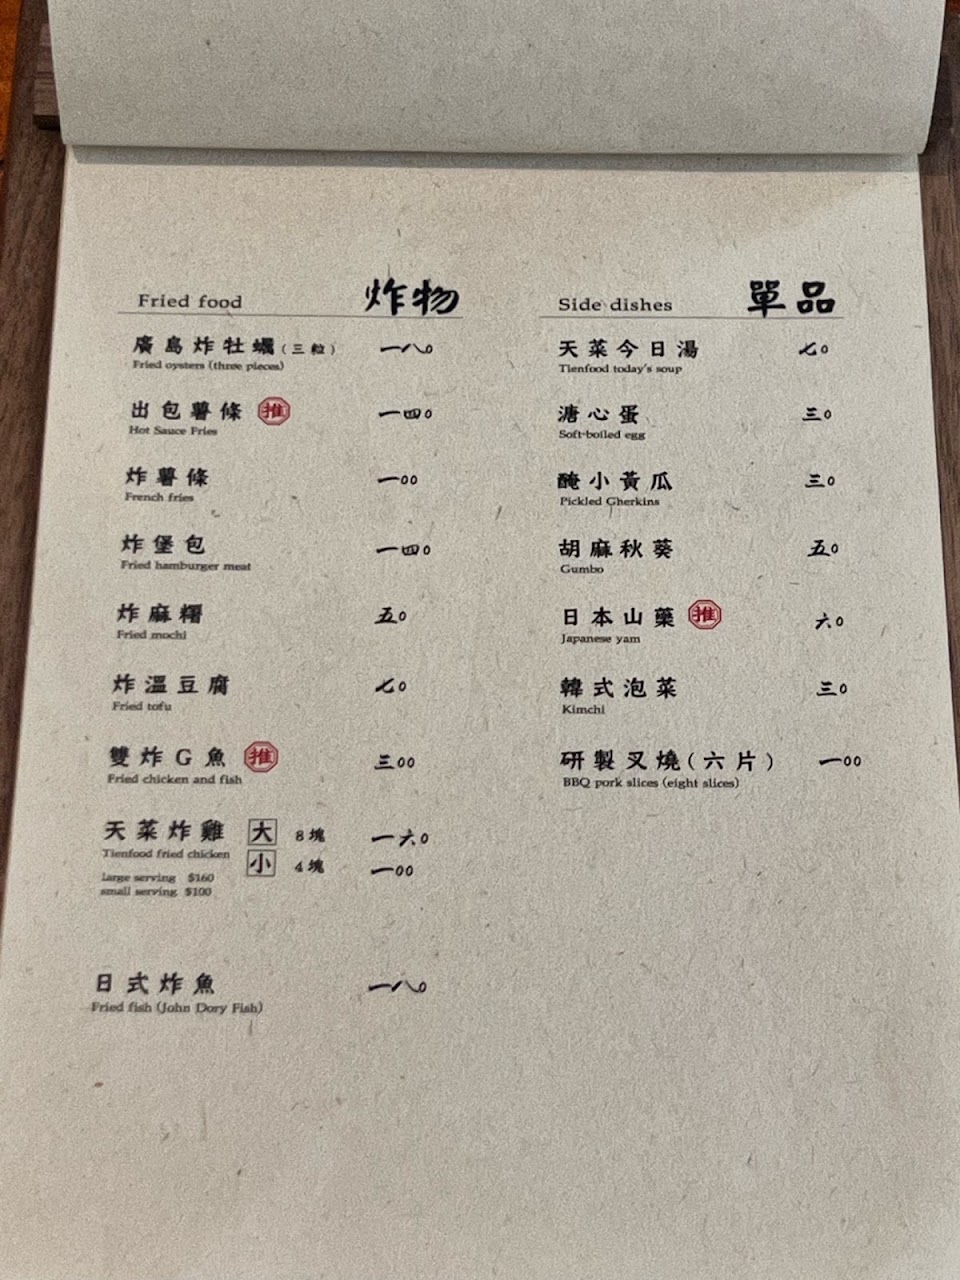 Fried food 炸物
廣島炸牡蠣(三粒) 一八0
Fried oysters (three pieces)
出包薯條 推 一四0
Hot Sauce Fries
炸薯條 一00
French fries
炸堡包 一四0
Fried hamburger meat
炸麻糬 五0
Fried mochi
炸溫豆腐 七0
Fried tofu
雙炸G魚 推 三00
Fried chicken and fish
天菜炸雞 大 8塊 一六0
Tienfood fried chicken
小 4塊 一00
large serving $160
small serving $100
日式炸魚 一八0
Fried fish (John Dory Fish)
Side dishes 單品
天菜今日湯 七0
Tienfood today's soup
溏心蛋 三0
Soft-boiled egg
醃小黃瓜 三0
Pickled Gherkins
胡麻秋葵 五0
Gumbo
日本山藥 推 六0
Japanese yam
韓式泡菜 三0
Kimchi
研製叉燒(六片) 一00
BBQ pork slices (eight slices)